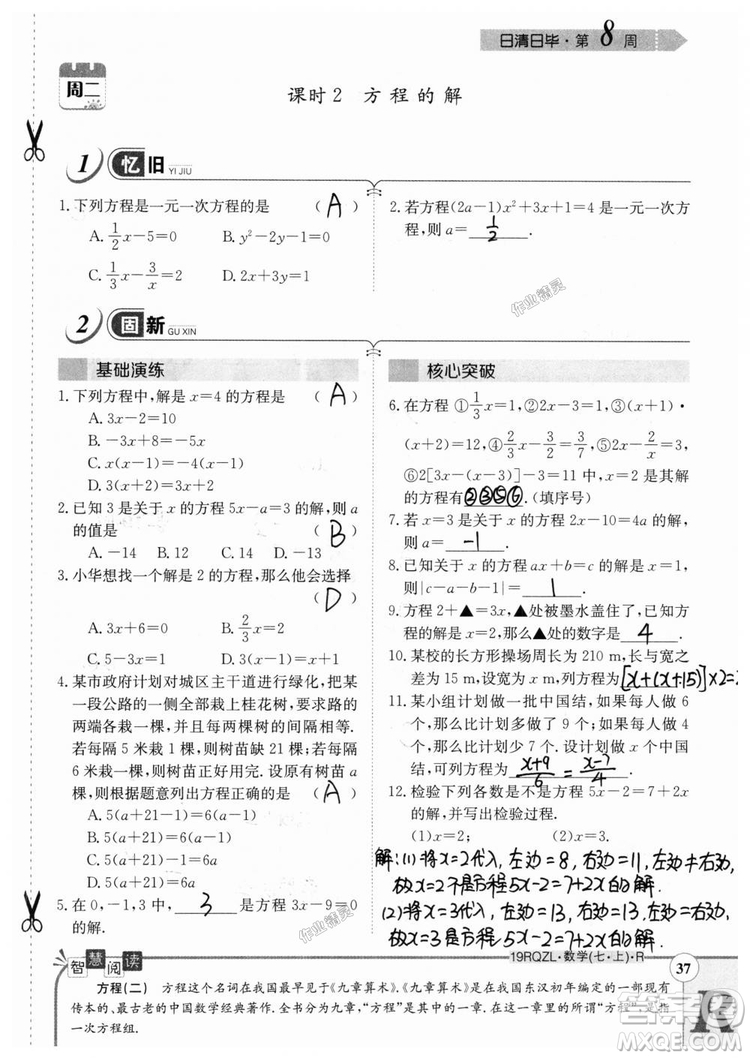 日清日毕·第8周
周二
课时2 方程的解
1 忆旧 YI JIU
1.下列方程是一元一次方程的是 （A）
A.1/2x-5=0 B.y²-2y=0
C.1/3x-3/x=2 D.2x+3y=0
2.若方程(2a-1)x²+3x+1=4是一元一次方
程,则a=1/2.
2 固新 GU XIN
基础演练
1.下列方程中,解是x=4的方程是 （A）
A.3x-2=10
B.-3x+8=-5x
C.x(x-1)=-4(x-1)
D.3(x+2)=3x+2
2.已知3是关于x的方程5x-a=3的解,则a
的值是 （B）
A.-14 B.12 C.14 D.-13
3.小华想找一个解是2的方程,他会选择
（D）
A.3x+6=0 B.2/3x=2
C.5-3x=1 D.3(x-1)=x+1
4.某市政府计划对城区主干道进行绿化,把某
一段公路的一侧全部栽上桂花树,要求路的
两端各栽一棵,并且每两棵树的间隔相等.
若每隔5米栽一棵,则树苗缺21棵;若每隔
6米栽一棵,则树苗正好用完.设原有树苗a
棵,则根据题意列出方程正确的是 （A）
A.5(a+21-1)=6(a-1)
B.5(a+21)=6(a-1)
C.5(a+21)-1=6a
D.5(a+21)=6a
5.在0,-1,3中,3是方程3x-9=0
的解.
核心突破
6.在方程①1/3x=1,②2x-2=1,③(x+1)·
(x+2)=12,④2/3x-7/3=0,⑤3x-5/2=2,
⑥2[3x-(x-3)]-3=11中,是其解
的方程有②③⑤⑥.(填序号)
7.若x=3是关于x的方程2x-10=4a的解,
则a=-1.
8.已知x=1是关于x的方程ax+b=c的解,
则|c-a-b+1|=1.
9.方程2+▲=3x,▲处被墨水盖住了,已知方
程的解是x=2,那么▲处的数字是4.
10.某校的长方形操场周长为210 m,长与宽之
差为15 m,设宽为x m,列方程为[x+(x+15)]×2=2
11.某小组计划做一批中国结,如果每人做6
个,那么比计划多做了9个;如果每人做4
个,那么比计划少7个.设计划做x个中国
结,可列方程为x+9/6=x-7/4.
12.检验下列各数是不是方程5x-2=7+2x
的解,并写出检验过程.
(1)x=2; (2)x=3.
解:(1)将x=2代入,左边=8,右边=11,左边≠右边,
故x=2不是方程5x-2=7+2x的解.
(2)将x=3代入,左边=13,右边=13,左边=右边,
故x=3是方程5x-2=7+2x的解.
19RQZL·数学(七·上)·R
37
智慧阅读
方程(二) 方程这个名词在我国最早见于《九章算术》.《九章算术》是在我国东汉初年编定的一部现有
传本的、最古老的中国数学经典著作.全书共分九章,“方程”是其中的一章.在这一章里的所谓“方程”是指
一次方程组.
R
作业精灵
作业精灵
MXQE.COM